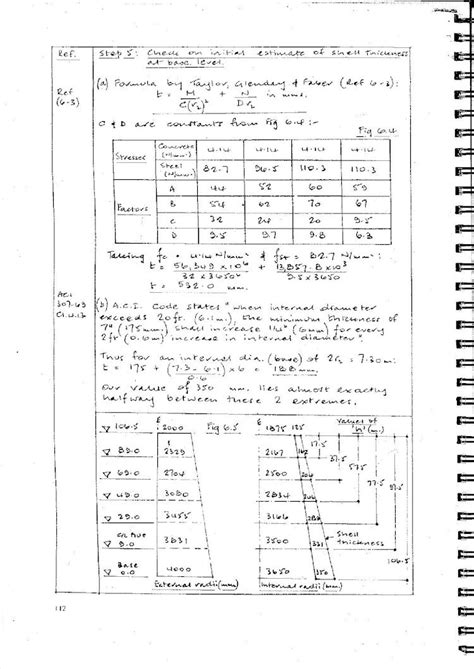 Ref.
Step 5: Check on initial estimate of shell thickness
at base level.
Ref
(6-3)
(a) Formula by Taylor, Glenday & Faber (Ref 6-3):
t = M / C(r₂)² + N / D r₂ in mms.
C & D are constants from Fig 6.4:-
Fig 6.4
Stresses Concrete (N/mm²) 4.14 4.14 4.14 4.14
Steel (N/mm²) 82.7 96.5 110.3 110.3
Factors A 44 52 60 59
B 54 62 70 67
C 32 24 20 9.5
D 9.5 9.7 9.8 6.3
Taking fc = 4.14 N/mm² & fst = 82.7 N/mm²:
t = 56,349 x 10⁶ / 32 x (3650)² + 13,857.8 x 10³ / 9.5 x 3650
t = 532.0 mm.
ACI
307-69
Cl.4.1.3
(b) A.C.I. Code states "when internal diameter
exceeds 20ft. (6.1m), the minimum thickness of
7" (175mm) shall increase 1/4" (6mm) for every
2ft (0.6m) increase in internal diameter".
Thus for an internal dia. (base) of 2r₂ = 7.30m:
t = 175 + (7.3 - 6.1) x 6 / 0.6 = 188 mm.
Our value of 350 mm. lies almost exactly
halfway between these 2 extremes.
Fig 6.5
values of
'h' (m.)
▽ 106.5 2000 1875 125
▽ 89.0 2329 2167 162 17.5
▽ 69.0 2704 2500 37.5
▽ 49.0 3080 2834 57.5
▽ 29.0 3455 3166 77.5
▽ 9.0 3831 3500 331 97.5
shell
thickness
Base
▽ 0.0 4000 3650 350 106.5
External radii (mm)
Internal radii (mm)
112